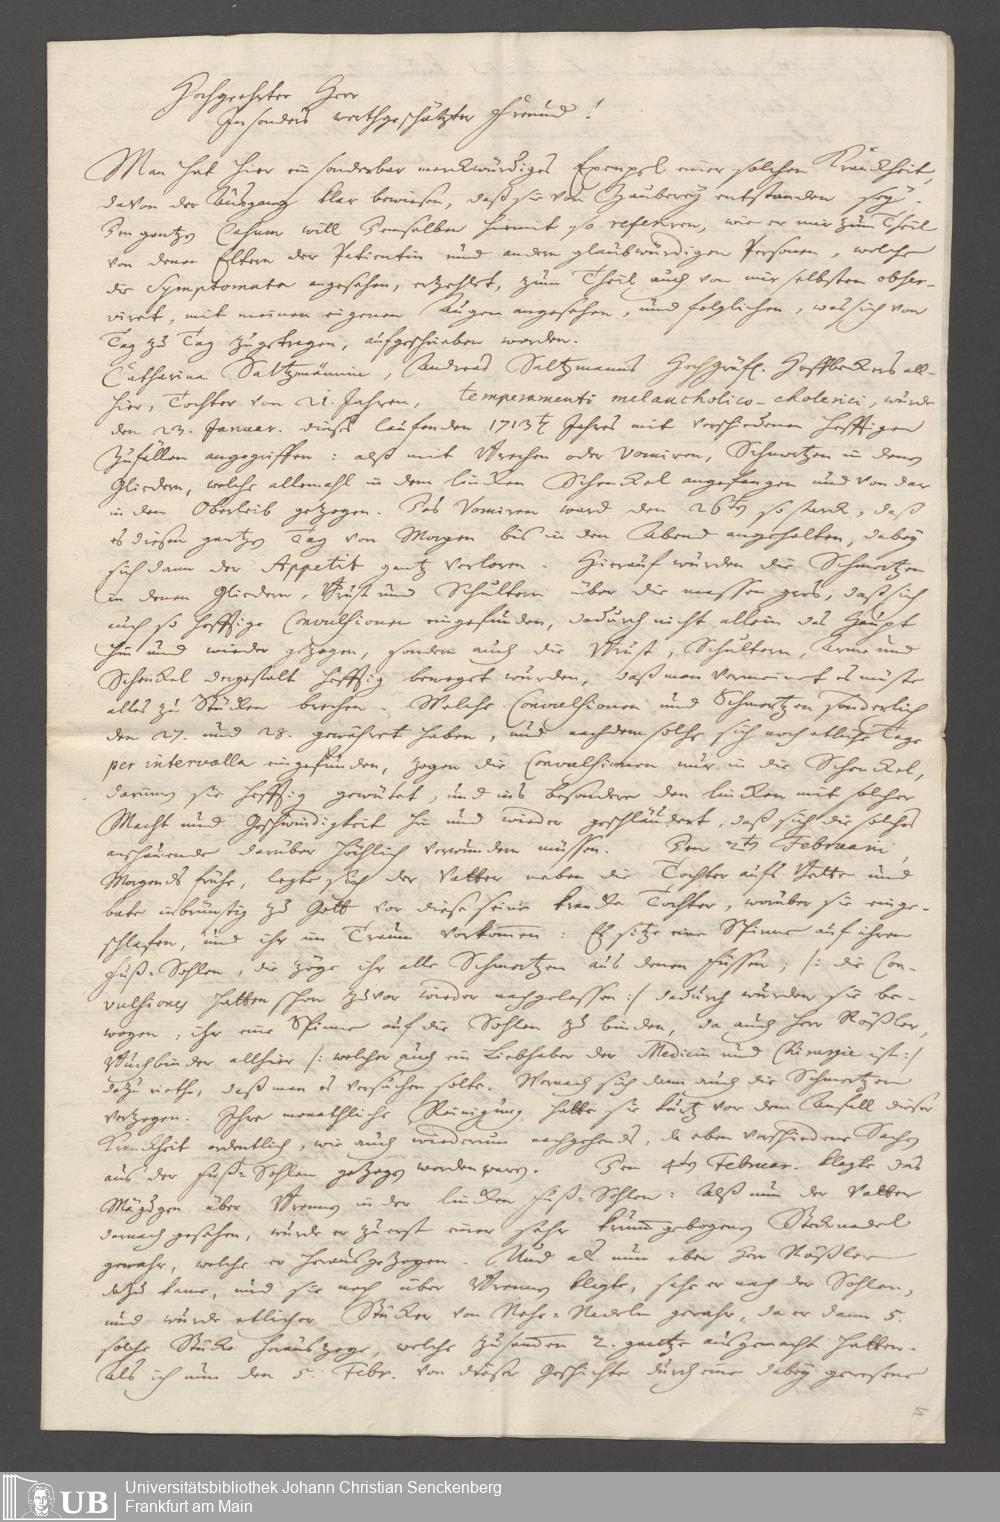 Hochgeehrter Herr
Insonders werthgeschätzter Freund!
Man hat hier ein sonderbar merckwürdiges Exempel einer solchen Kranckheit,
davon der Ausgang klar bewiesen, daß sie von Zauberey entstanden sey.
Den gantzen Casum will demselben hiermit so referiren, wie er mir zum Theil
von denen Eltern der Patientin und andern glaubwürdigen Personen, welche
die Symptomata angesehen, erzehlet, zum Theil auch von mir selbsten obser-
viret, mit meinen eigenen Augen angesehen, und folglichen, was sich von
Tag zu Tag zugetragen, aufgeschrieben worden.
Catharina Saltzmännin, Andreas Saltzmanns Hochgräfl. Hoffbeckers all-
hier, Tochter von 21. Jahren, temperamenti melancholico-cholerici, wurde
den 23. Januar. dieses lauffenden 1713t Jahres mit verschiedenen hefftigen
Zufällen angegriffen: alß mit Brechen oder Vomiren, Schmertzen in denen
Gliedern, welche allemahl in dem lincken Schenckel angefangen und von dar
in den Oberleib gezogen. Das Vomiren ward den 26t so starck, daß
es diesen gantzen Tag von Morgen bis in den Abend angehalten, dabey
sich dann der Appetit gantz verloren. Hierauf wurden die Schmertzen
in denen Gliedern, Brust und Schultern über die massen gros, daß sich
auch so hefftige Convulsionen eingefunden, dadurch nicht allein das Haupt
hin und wieder gezogen, sondern auch die Brust, Schultern, Arme und
Schenckel dergestalt hefftig beweget wurden, daß man vermeinet es müste
alles zu Stücken brechen. Welche Convulsionen und Schmertzen sonderlich
den 27. und 28. gewähret haben, und nachdem solche sich noch etliche Tage
per intervalla eingefunden, zogen die Convulsionen nur in die Schenckel,
darinnen sie hefftig gewütet, und ins besondere den lincken mit solcher
Macht und Geschwindigkeit hin und wieder geschlaudert, daß sich die solches
anschauende darüber höchlich verwundern müssen. Den 2t Februarii,
Morgends frühe, legte sich der Vatter neben die Tochter aufs Bette und
bate inbrünstig zu Gott vor diese seine krancke Tochter, worüber sie einge-
schlafen, und ihr im Traum vorkommen: Es sitze eine Spinne auf ihren
Fuß-Sohlen, die zöge ihr alle Schmertzen aus denen Füssen; /: die Con-
vulsiones hatten schon zuvor wieder nachgelassen :/ dadurch wurden sie be-
wogen, ihr eine Spinne auf die Sohlen zu binden, da auch Herr Rößler,
Buchbinder allhier /: welcher auch ein Liebhaber der Medicin und Chirurgie ist :/
dazu riethe, daß man es versuchen solte. Wornach sich dann auch die Schmertzen
verzogen. Ihre monathliche Reinigung hatte sie kurtz vor dem Anfall dieser
Kranckheit ordentlich, wie auch wiederum nachgehends, da eben verschiedene Sachen
aus der Fuß-Sohlen gezogen worden waren. Den 4t Februar. klagte das
Mägdgen über Brennen in der lincken Fuß-Sohlen: Alß nun der Vatter
darnach gesehen, wurde er zuerst einer sehr krummgebogenen Stecknadel
gewahr, welche er herausgezogen. Und als nun eben Herr Rößler
dazu kame, und sie noch über Brennen klagte, sahe er nach der Sohlen,
und wurde etlicher Stücker von Nehe-Nadeln gewahr, da er dann 5.
solche Stücke herauszoge, welche zusammen 2. gantze ausgemacht hatten.
Als ich nun den 5. Febr. von dieser Geschichte durch eine dabey gewesene
5
Universitätsbibliothek Johann Christian Senckenberg
Frankfurt am Main
UB